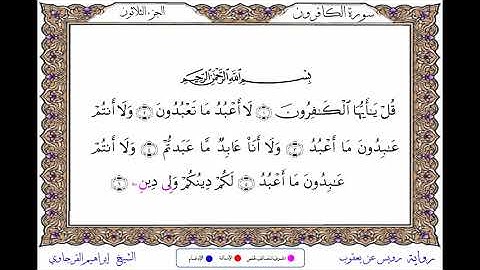 سورة الكافرون
الجزء الثلاثون
بِسْمِ ٱللَّهِ ٱلرَّحْمَٰنِ ٱلرَّحِيمِ
قُلْ يَٰٓأَيُّهَا ٱلْكَٰفِرُونَ ١ لَآ أَعْبُدُ مَا تَعْبُدُونَ ٢ وَلَآ أَنتُمْ
عَٰبِدُونَ مَآ أَعْبُدُ ٣ وَلَآ أَنَا۠ عَابِدٌ مَّا عَبَدتُّمْ ٤ وَلَآ أَنتُمْ
عَٰبِدُونَ مَآ أَعْبُدُ ٥ لَكُمْ دِينُكُمْ وَلِي دِينِ ٦
رواية رويس عن يعقوب
الإمالة
الإدغام
الشيخ إبراهيم الفرجاوي